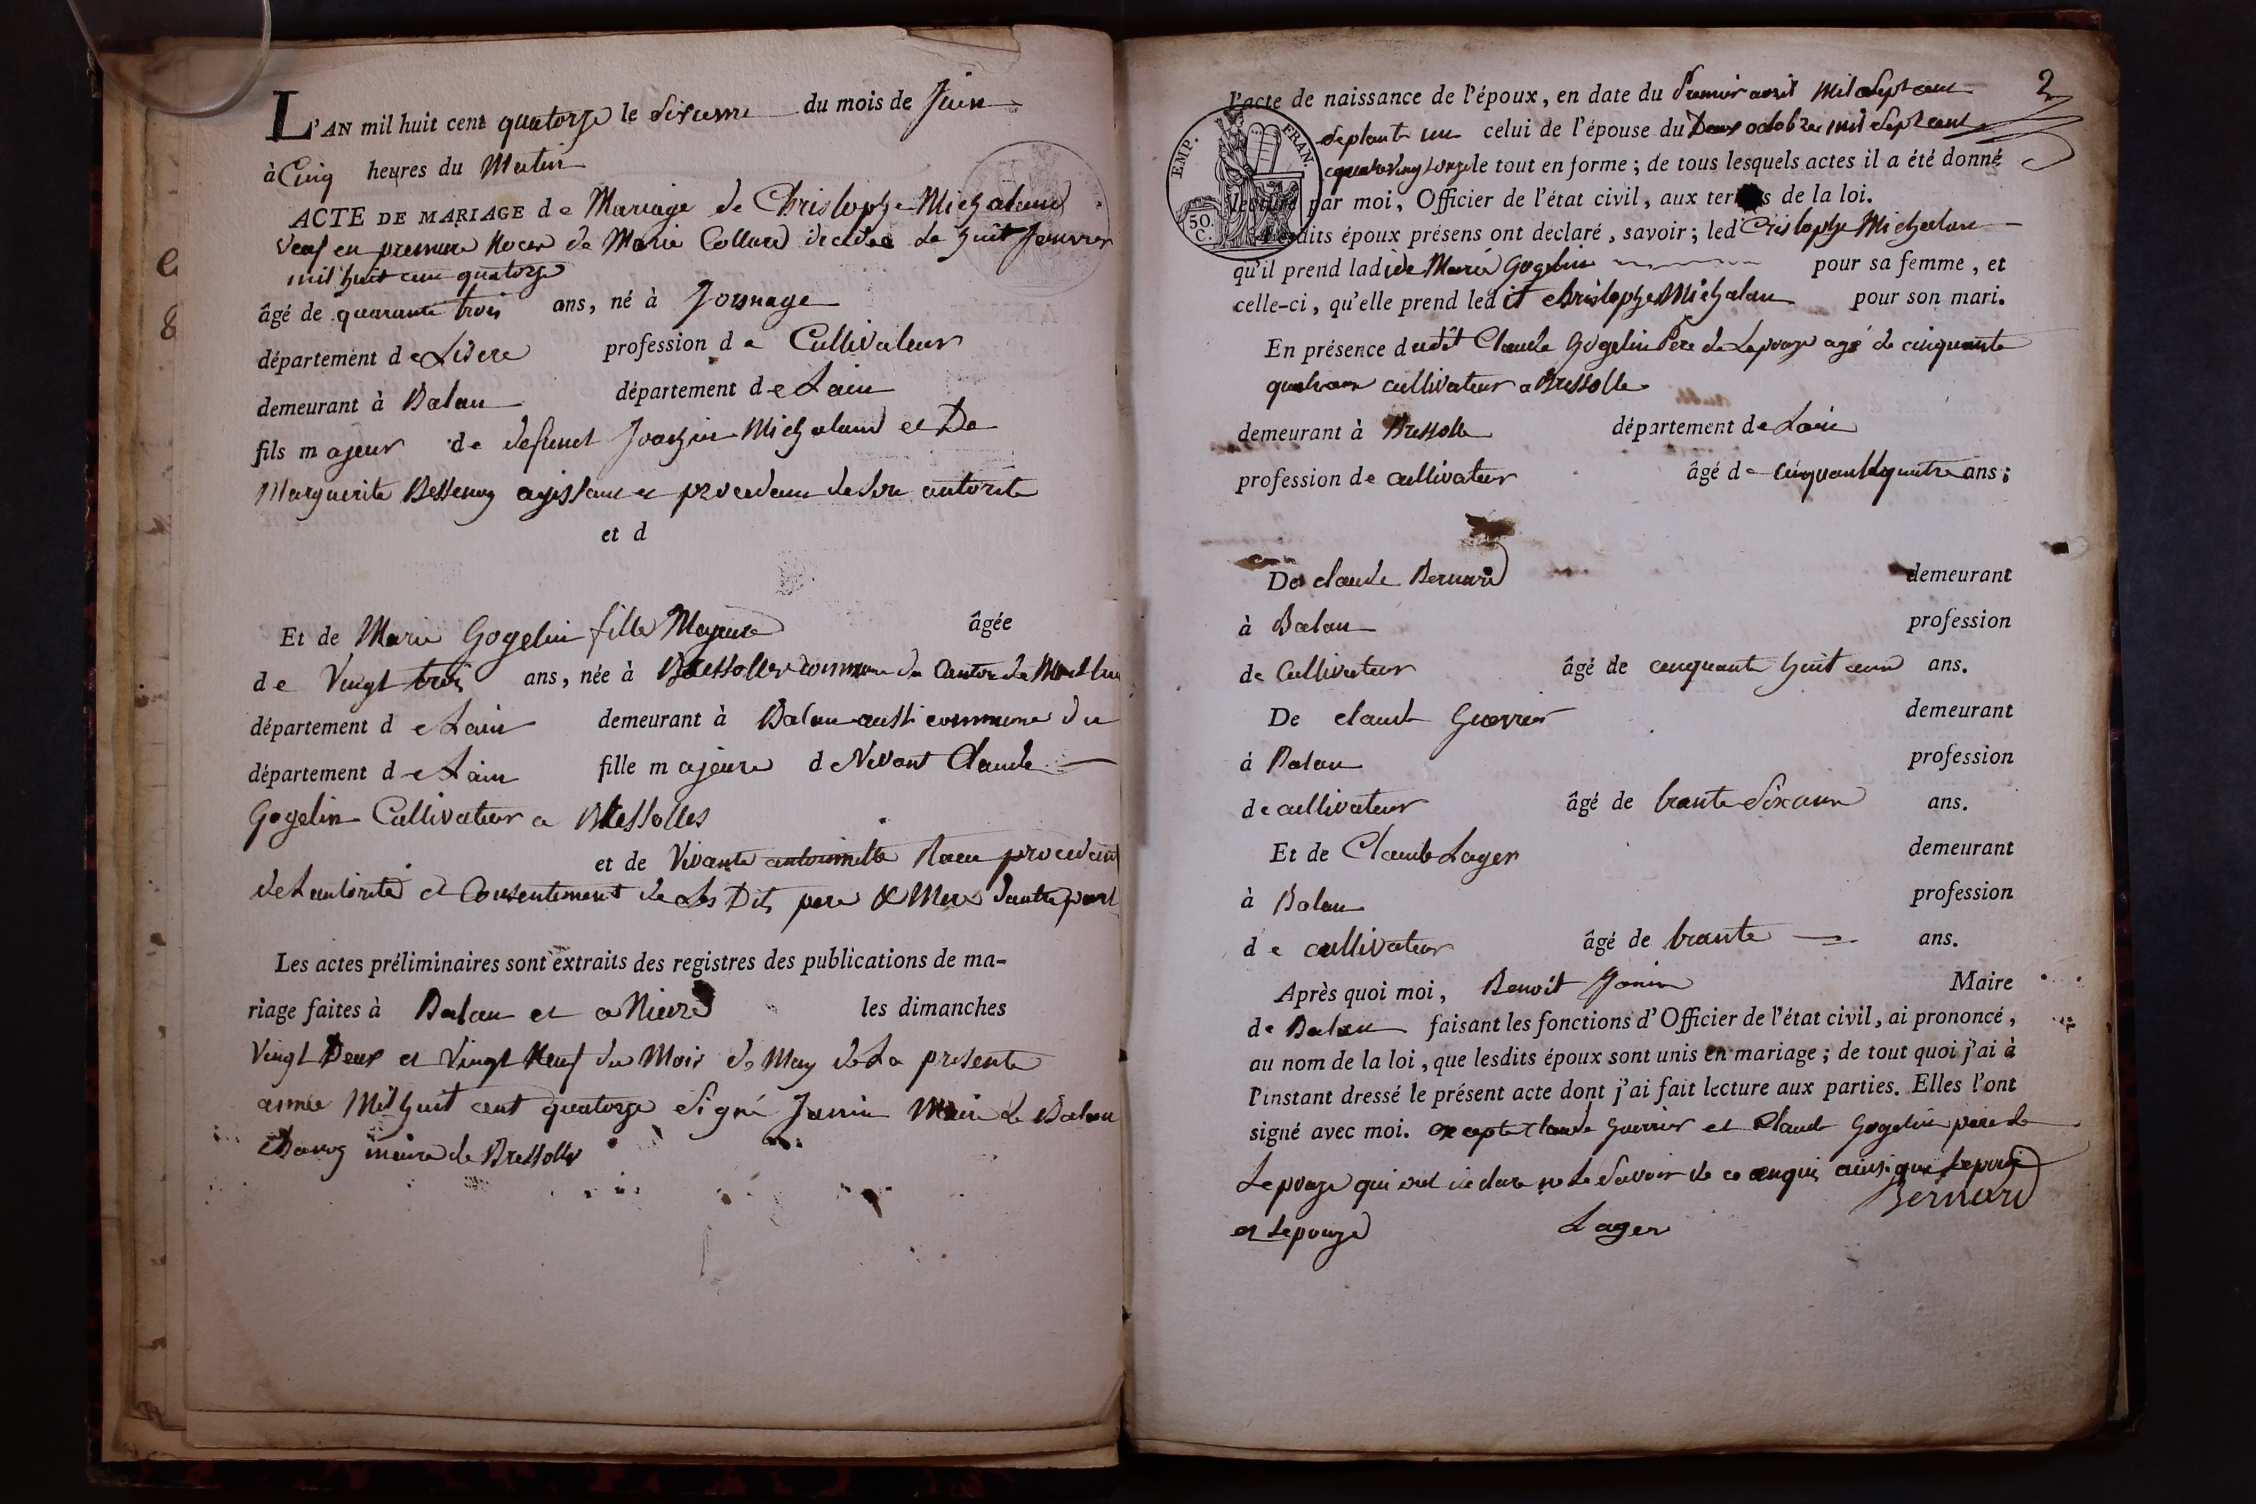 L'AN mil huit cent quatorze le sixieme du mois de Juin
à Cinq heures du Matin
ACTE DE MARIAGE de Mariage de Christophe Michaland
veuf en premiere Noces de Marie Collard decedee Le huit Janvier
mil huit cent quatorze
âgé de quarante trois ans, né à Jonnage
département de Lisere profession de Cultivateur
demeurant à Balan département de Lain
fils majeur de defunct Joachin Michaland et De
Marguerite Bessenay agissant et procedant de son autorité
et d
Et de Marie Gogelin fille Majeure âgée
de Vingt trois ans, née à Bressolles commune du Canton de
département de Lain demeurant à Balan aussi commune du
département de Lain fille majeure de Vivant Claude
Gogelin Cultivateur a Bressolles
et de Vivante antoinette procedant
de Lautorité et Consentement de Les Dits pere & Mere dautre part
Les actes préliminaires sont extraits des registres des publications de ma-
riage faites à Balan et a les dimanches
Vingt Deux et Vingt Neuf du Mois de May de La presente
année Mil huit cent quatorze Signé Janin Maire de Balan
maire de Bressolles
2
l'acte de naissance de l'époux, en date du Premier avril Mil Sept cent
septante un celui de l'épouse du Deux octobre mil Sept cent
quatre vingt onze le tout en forme ; de tous lesquels actes il a été donné
lecture par moi, Officier de l'état civil, aux termes de la loi.
EMP. FRAN.
50. C.
Lesdits époux présens ont declaré, savoir; led Cristophe Michalan
qu'il prend ladite Marie Gogelin pour sa femme, et
celle-ci, qu'elle prend ledit christophe Michalan pour son mari.
En présence dudit Claude Gogelin Pere de Lepouze agé de cinquante
quatre ans cultivateur a Bressolle
demeurant à Bressolle département de Lain
profession de cultivateur âgé de cinquante quatre ans;
De claude Bernard demeurant
à Balan profession
de Cultivateur âgé de cinquante huit ans ans.
De claude Guerrier demeurant
à Balan profession
de cultivateur âgé de trante Six ans ans.
Et de Claude Lager demeurant
à Balan profession
de cultivateur âgé de trante ans.
Après quoi moi, Benoit Janin Maire
de Balan faisant les fonctions d'Officier de l'état civil, ai prononcé,
au nom de la loi, que lesdits époux sont unis en mariage; de tout quoi j'ai à
l'instant dressé le présent acte dont j'ai fait lecture aux parties. Elles l'ont
signé avec moi. excepte Claude Guerrier et Claude Gogelin pere de
Lepouze qui ont declare ne Le Savoir de ce enquis ainsi que Lepoux
et Lepouze Lager Bernard